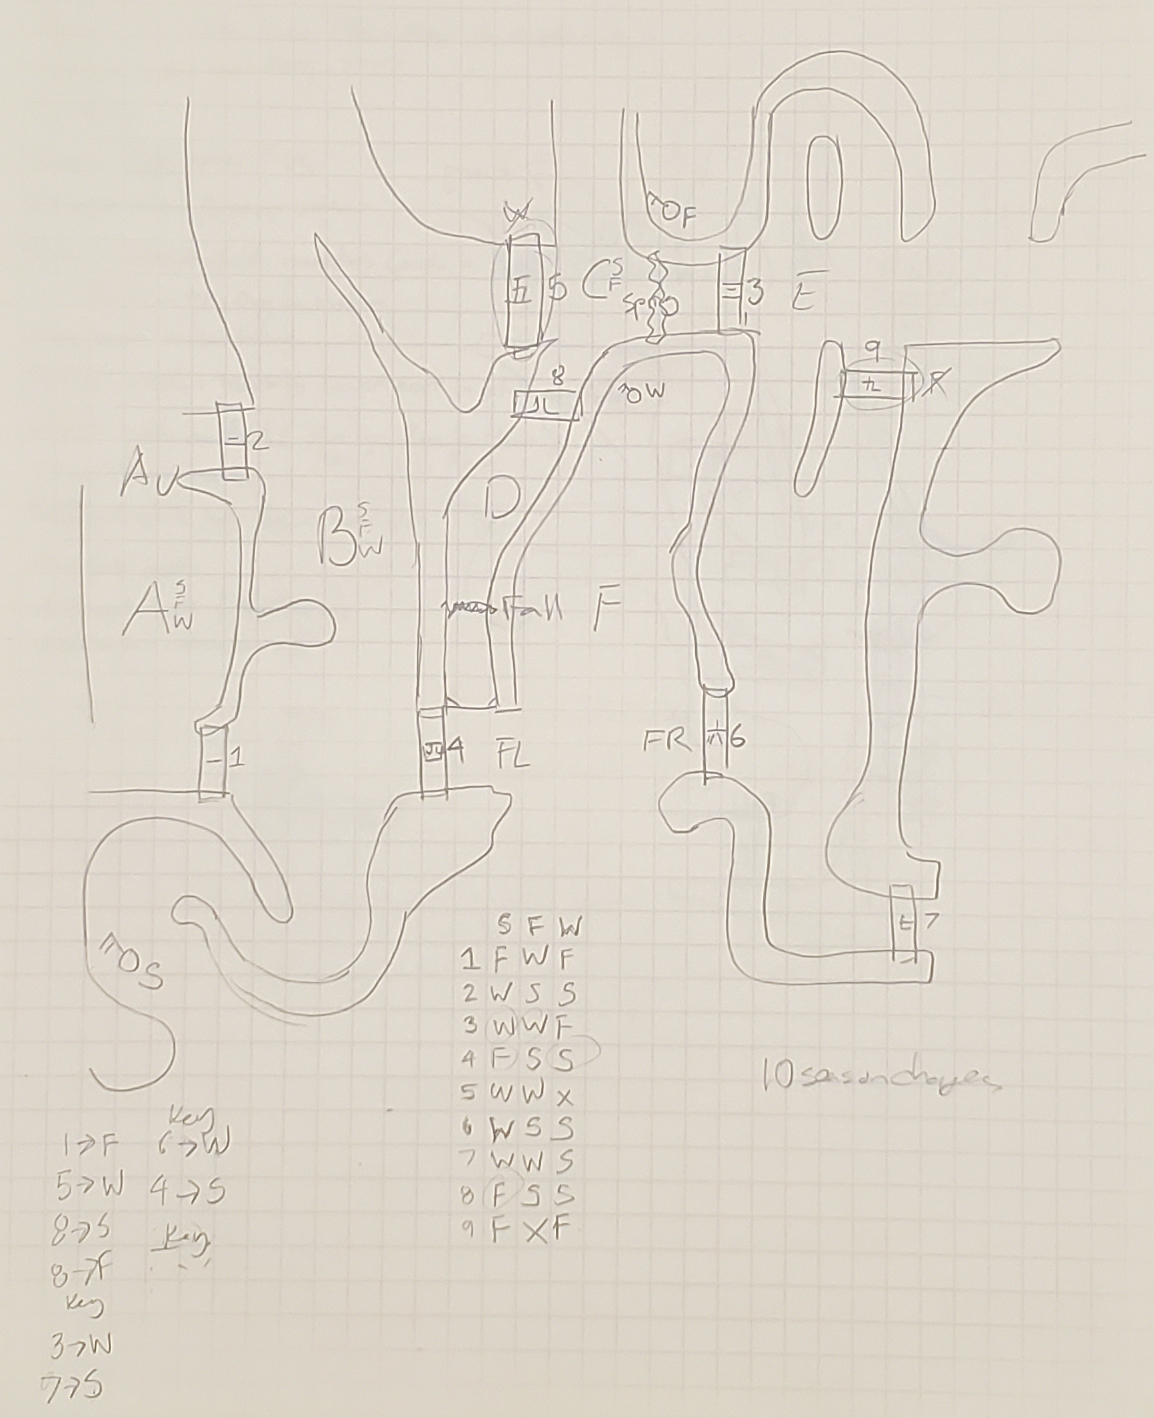 W
OF
5
C S F
Spr
3
E
9
X
8
OW
2
AU
D
B S F W
A S F W
Fall
F
1
4
FL
FR
6
7
OS
S F W
1 F W F
2 W S S
3 W W F
4 F S S
5 W W X
6 W S S
7 W W S
8 F S S
9 F X F
10 season changes
1→F
5→W
8→S
8→F
Key
3→W
7→S
Key
6→W
4→S
Key